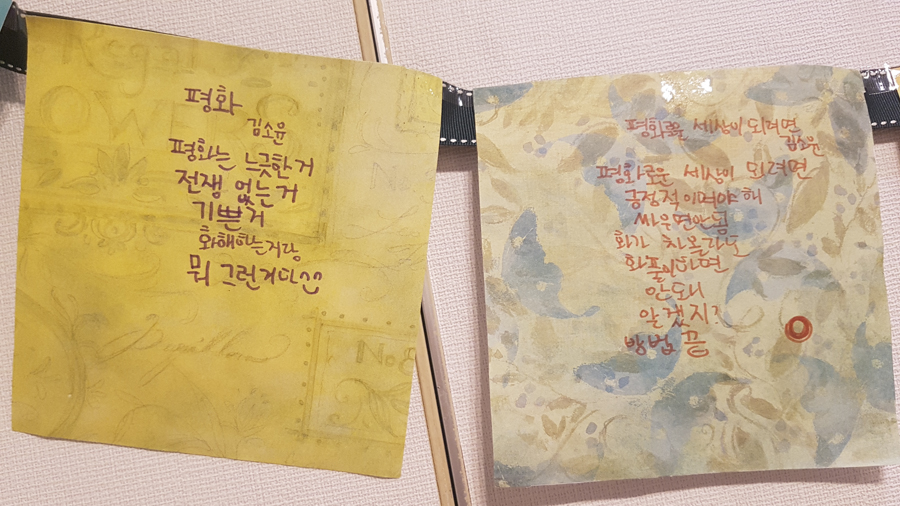 평화
김소윤
평화는 느긋한거
전쟁 없는거
기쁜거
화해하는거랑
뭐 그런거다^^
평화로운 세상이 되려면
김소윤
평화로운 세상이 되려면
긍정적이여야 해
싸우면안됨
화가 차올라도
화풀이하면
안되니
알겠지?
방법 끝